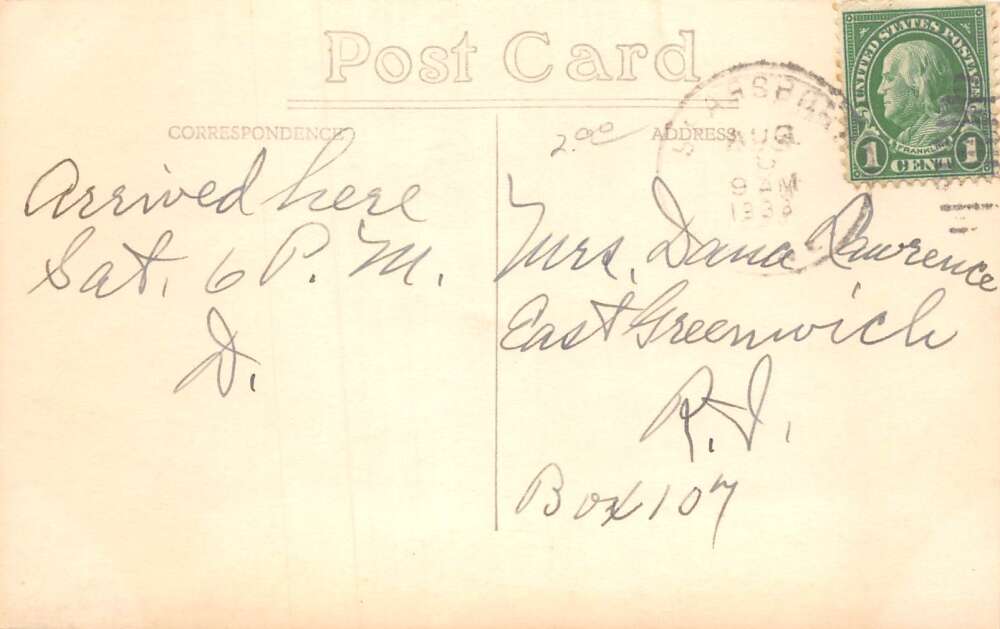 Post Card
CORRESPONDENCE
ADDRESS
2.00
UNITED STATES POSTAGE
FRANKLIN
1 CENT 1
AUG
9 AM
Arrived here
Sat. 6 P. M.
D.
Mrs. Dana Lawrence
East Greenwich
R.I.
Box 107